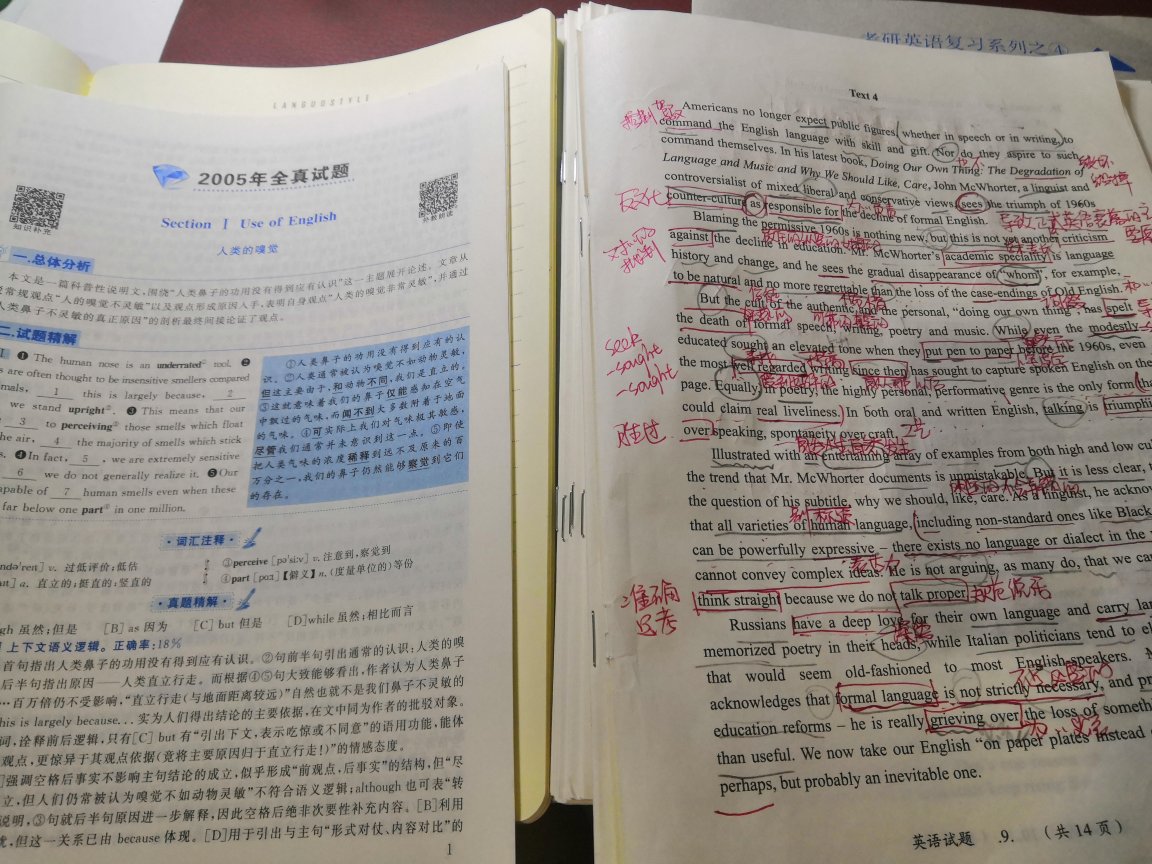 LANGUOSTYLE
2005年全真试题
知识补充
外教朗读
Section Ⅰ Use of English
人类的嗅觉
一.总体分析
本文是一篇科普性说明文,围绕“人类鼻子的功用没有得到应有认识”这一主题展开论述。文章从
常规观点“人的嗅觉不灵敏”以及观点形成原因入手,表明自身观点“人类的嗅觉非常灵敏”,并通过
人类鼻子不灵敏的真正原因”的剖析最终间接论证了观点。
二.试题精解
❶ The human nose is an underrated① tool. ❷
s are often thought to be insensitive smellers compared
mals, 1 this is largely because, 2
we stand upright②. ❸ This means that our
3 to perceiving③ those smells which float
he air, 4 the majority of smells which stick
s. ❹ In fact, 5 , we are extremely sensitive
6 we do not generally realize it. ❺ Our
apable of 7 human smells even when these
far below one part④ in one million.
①人类鼻子的功用没有得到应有的认
识。②人类通常被认为嗅觉不如动物灵敏,
但这主要由于,和动物不同,我们是直立的。
③这就意味着我们的鼻子仅能感知在空气
中飘过的气味,而闻不到大多数附着于地面
的气味。④可实际上我们对气味极其敏感,
尽管我们通常并未意识到这一点。⑤即使
把人类气味的浓度稀释到远不及原来的百
万分之一,我们的鼻子仍然能够察觉到它们
的存在。
·词汇注释·
v. 过低评价;低估
a. 直立的;挺直的;竖直的
③perceive [pəˈsiːv] v. 注意到,察觉到
④part [pɑːt]【僻义】n. (度量单位的)等份
·真题精解·
gh 虽然;但是 [B] as 因为 [C] but 但是 [D]while 虽然;相比而言
上下文语义逻辑。正确率:18%
首句指出人类鼻子的功用没有得到应有认识。②句前半句引出通常的认识:人类的嗅
后半句指出原因——人类直立行走。而根据④⑤句大致能够看出,作者认为人类鼻子
…百万倍仍不受影响,“直立行走(与地面距离较远)”自然也就不是我们鼻子不灵敏的
his is largely because... 实为人们得出结论的主要依据,在文中同为作者的批驳对象。
词,诠释前后逻辑,只有[C] but 有“引出下文,表示吃惊或不同意”的语用功能,能体
观点,更惊异于其观点依据(竟将主要原因归于直立行走!)”的情感态度。
强调空格后事实不影响主句结论的成立,似乎形成“前观点,后事实”的结构,但“尽
立,但人们仍常被认为嗅觉不如动物灵敏”不符合语义逻辑;although 也可表“转
说明,③句就后半句原因进一步解释,因此空格后绝非次要性补充内容。[B]利用
就,但这一关系已由 because 体现。[D]用于引出与主句“形式对仗、内容对比”的
1
考研英语复习系列之④
Text 4
Americans no longer expect public figures, whether in speech or in writing, to
command the English language with skill and gift. Nor do they aspire to such
command themselves. In his latest book, Doing Our Own Thing: The Degradation of
Language and Music and Why We Should Like, Care, John McWhorter, a linguist and
controversialist of mixed liberal and conservative views, sees the triumph of 1960s
counter-culture as responsible for the decline of formal English.
Blaming the permissive 1960s is nothing new, but this is not yet another criticism
against the decline in education. Mr. McWhorter's academic speciality is language
history and change, and he sees the gradual disappearance of “whom”, for example,
to be natural and no more regrettable than the loss of the case-endings of Old English.
But the cult of the authentic and the personal, “doing our own thing”, has spelt
the death of formal speech, writing, poetry and music. While even the modestly
educated sought an elevated tone when they put pen to paper before the 1960s, even
the most well regarded writing since then has sought to capture spoken English on the
page. Equally, in poetry, the highly personal, performative genre is the only form
could claim real liveliness. In both oral and written English, talking is triumphi
over speaking, spontaneity over craft.
Illustrated with an entertaining array of examples from both high and low cul
the trend that Mr. McWhorter documents is unmistakable. But it is less clear, t
the question of his subtitle, why we should, like, care. As a linguist, he acknow
that all varieties of human language, including non-standard ones like Black
can be powerfully expressive – there exists no language or dialect in the
cannot convey complex ideas. He is not arguing, as many do, that we ca
think straight because we do not talk proper.
Russians have a deep love for their own language and carry lar
memorized poetry in their heads, while Italian politicians tend to el
that would seem old-fashioned to most English-speakers. M
acknowledges that formal language is not strictly necessary, and pr
education reforms – he is really grieving over the loss of someth
than useful. We now take our English “on paper plates” instead
perhaps, but probably an inevitable one.
seek
-sought
-sought
胜过
英语试题 .9. (共 14 页)